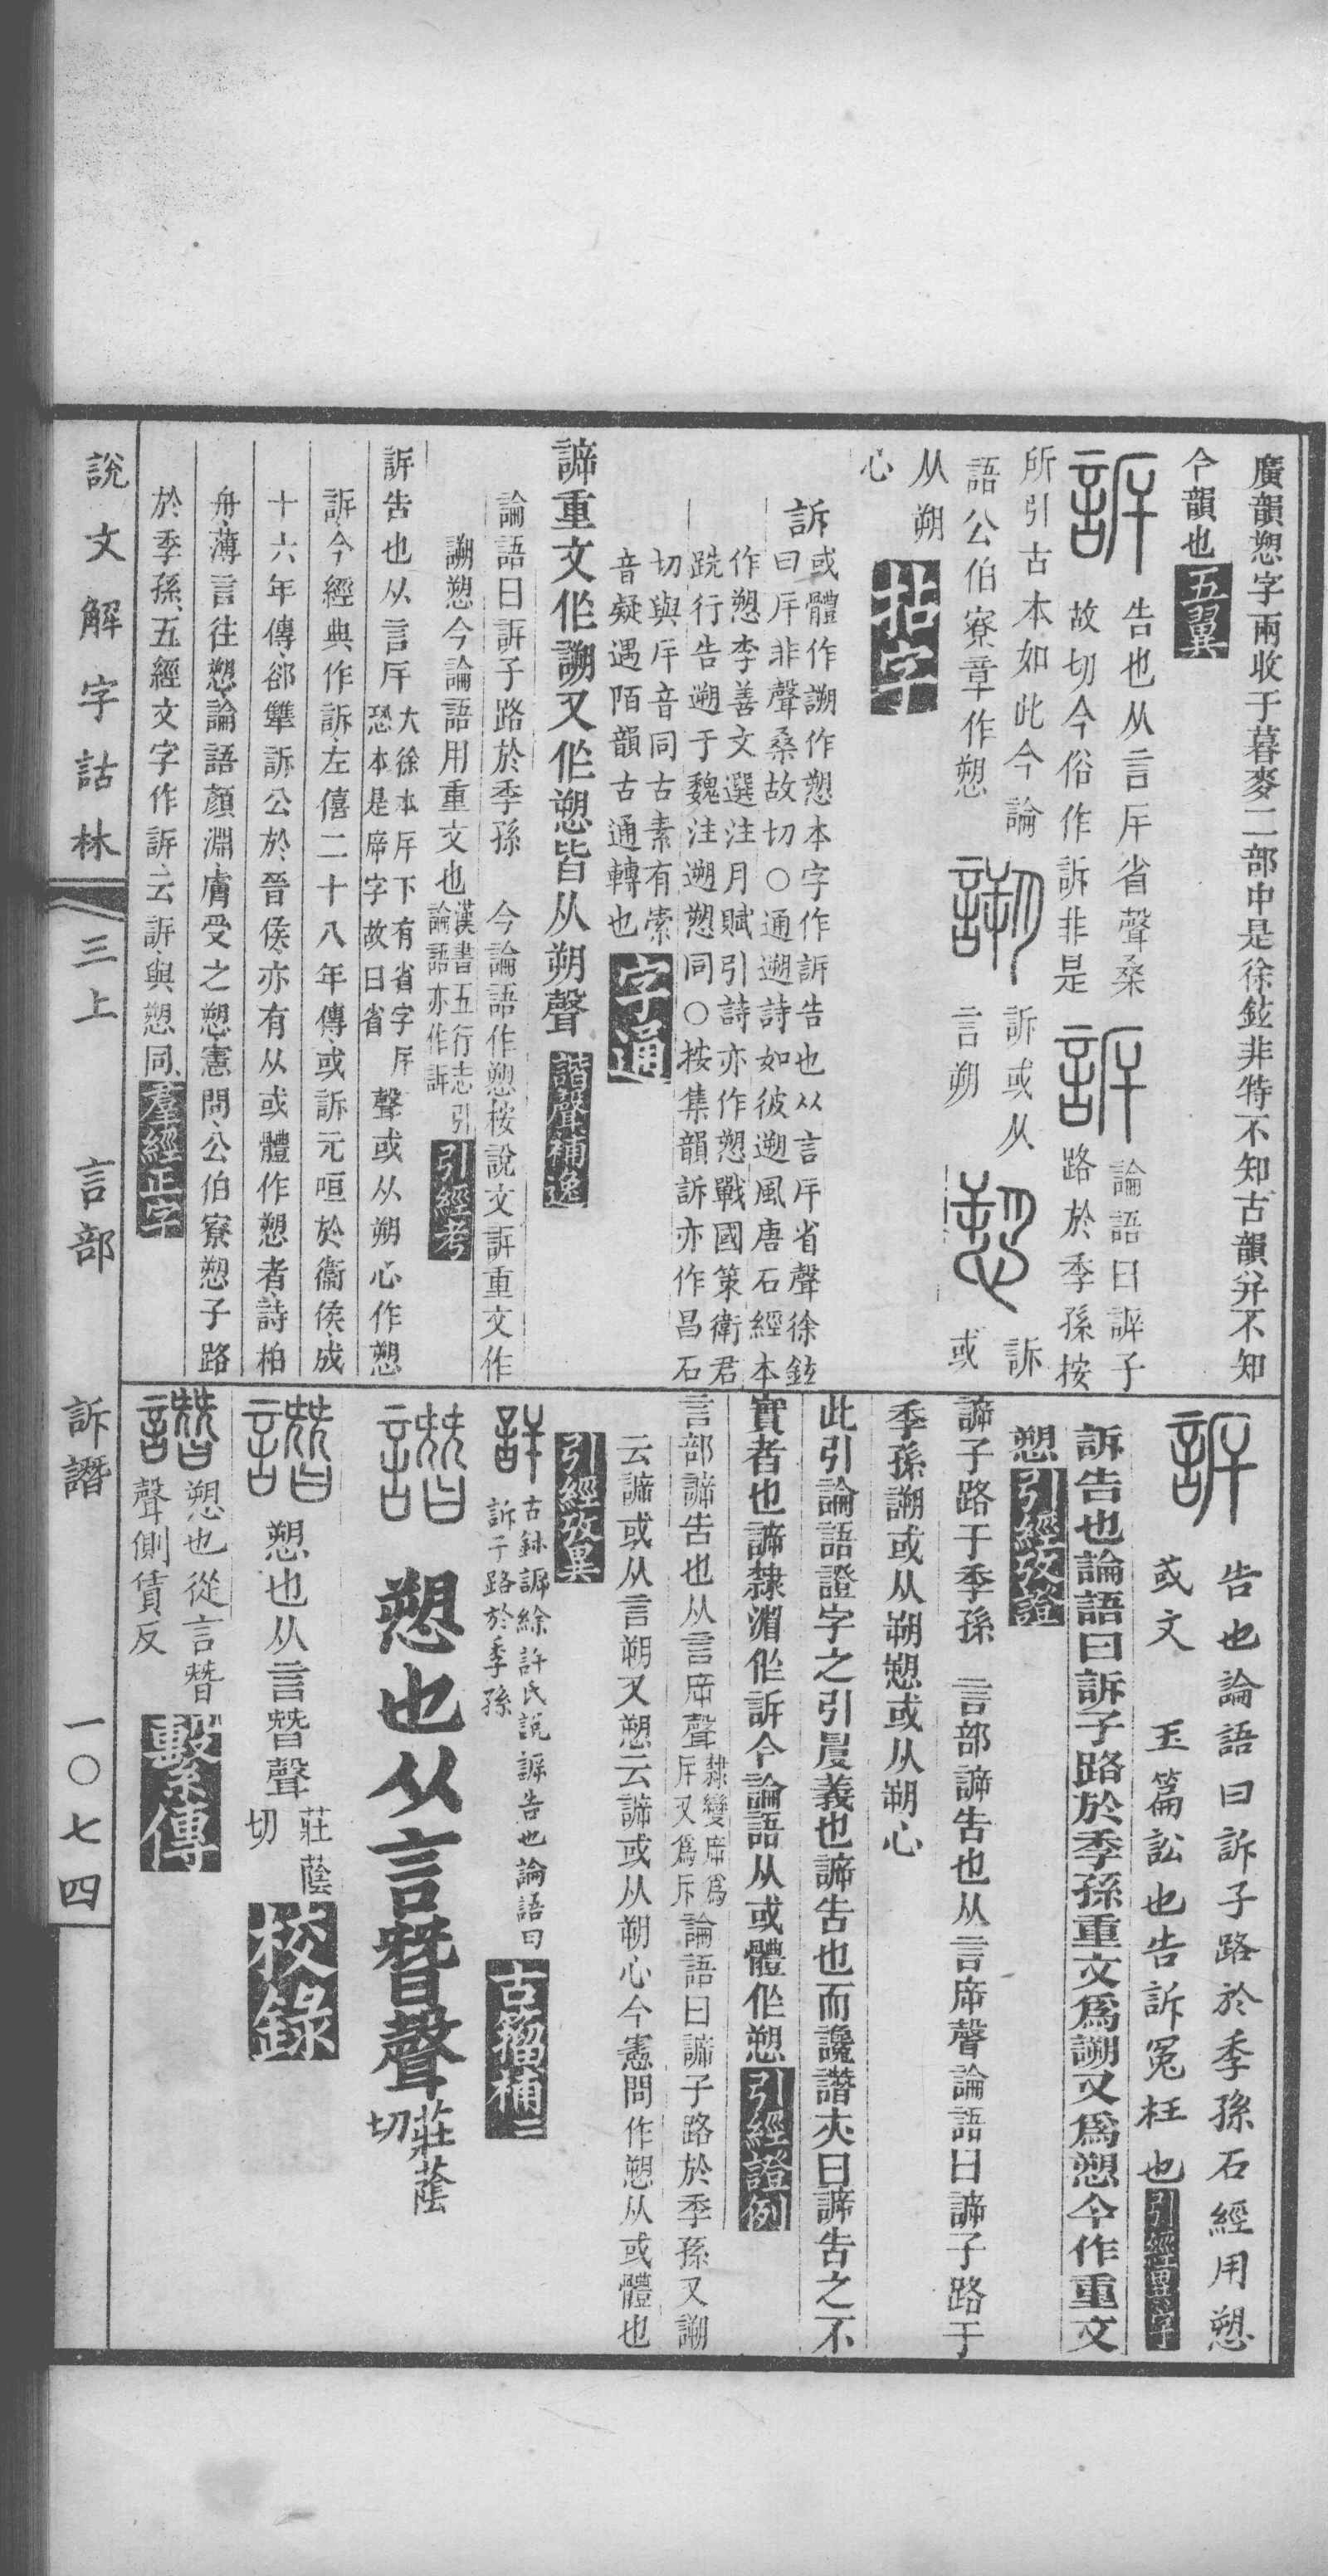 廣韻愬字兩收于暮麥二部中是徐鉉非特不知古韻幷不知
今韻也五翼
訴
告也从言㡿省聲桑
故切今俗作訴非是
訴
論語曰訴子
路於季孫按
所引古本如此今論
語公伯寮章作愬
訴或从
言朔
訴
或
从朔
心
拈字
訴
或體作謝作愬本字作訴告也从言㡿省聲徐鉉
曰㡿非聲桑故切○通遡詩如彼遡風唐石經本
作愬李善文選注月賦引詩亦作愬戰國策衛君
跣行告遡于魏注遡愬同○按集韻訴亦作昌石
切與㡿音同古素有索
音疑遇陌韻古通轉也
字通
諦重文作謝又作愬皆从朔聲諧聲補逸
論語曰訴子路於季孫　今論語作愬按說文訴重文作
謝愬今論語用重文也
漢書五行志引
論語亦作訴
引經考
訴告也从言㡿
大徐本㡿下有省字㡿
恐本是㡿字故曰省
聲或从朔心作愬
訴今經典作訴左僖二十八年傳或訴元咺於衞侯成
十六年傳郤犨訴公於晉侯亦有从或體作愬者詩柏
舟薄言往愬論語顏淵膚受之愬憲問公伯寮愬子路
於季孫五經文字作訴云訴與愬同羣經正字
訴
告也論語曰訴子路於季孫石經用愬
或文　玉篇訟也告訴冤枉也引經異字
訴告也論語曰訴子路於季孫重文爲謝又爲愬今作重文
愬引經攷證
諦子路于季孫　言部諦告也从言㡿聲論語曰諦子路于
季孫謝或从朔愬或从朔心
此引論語證字之引㫳義也諦告也而讒譖夾曰諦告之不
實者也諦隸㴘作訴今論語从或體作愬引經證例
言部諦告也从言㡿聲
隸變㡿爲
㡿又爲斥
論語曰諦子路於季孫又謝
云諦或从言朔又愬云諦或从朔心今憲問作愬从或體也
引經攷異
古鉢許氏說訴告也論語曰
訴子路於季孫
古籀補二
譖
愬也从言朁聲
莊蔭
切
譖
愬也从言朁聲
莊蔭
切
校錄
譖
愬也從言朁
聲側賃反
繫傳
說文解字詁林
三上　言部
訴譖
一〇七四